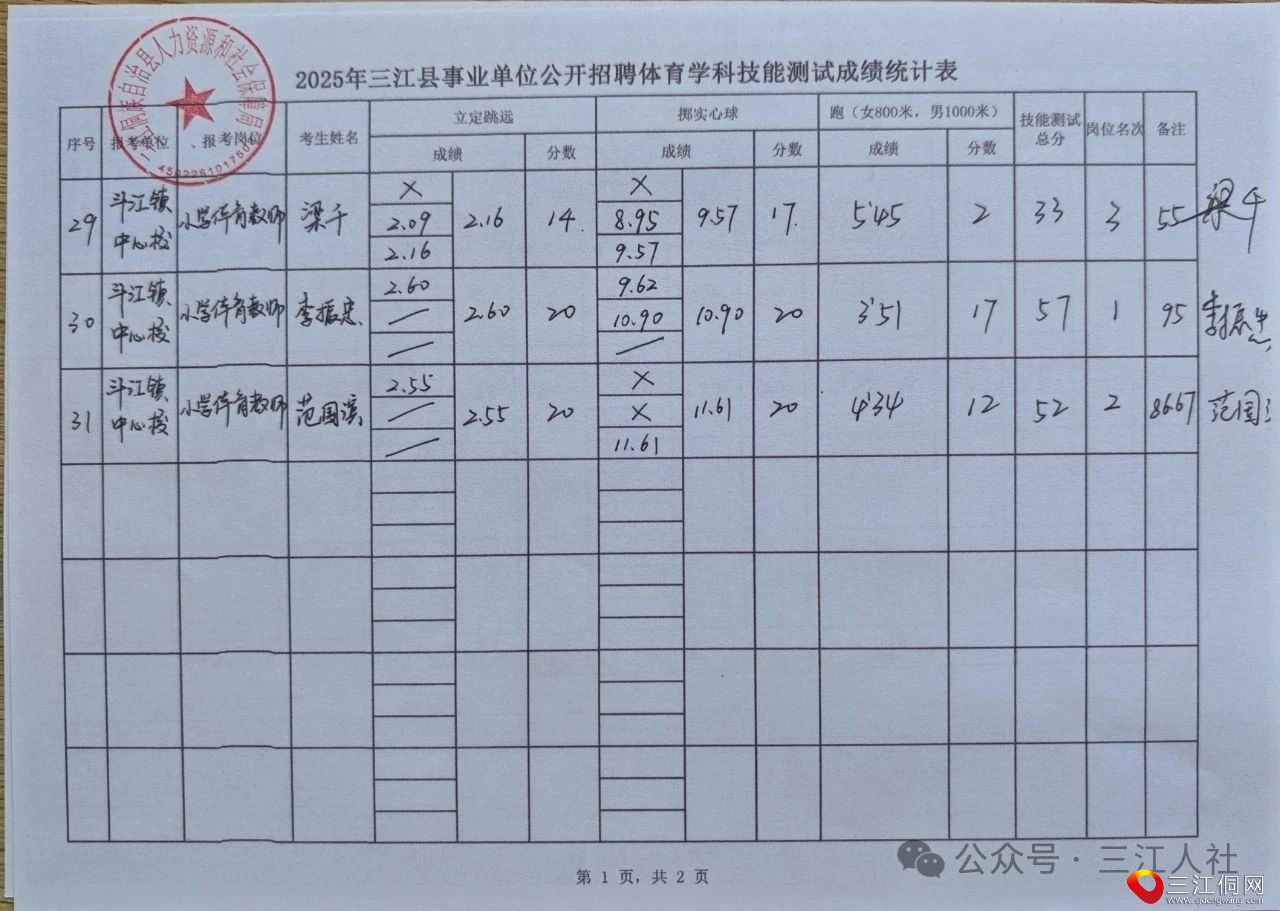 三江侗族自治县人力资源和社会保障局
2025年三江县事业单位公开招聘体育学科技能测试成绩统计表
序号 报考单位 报考岗位 考生姓名 立定跳远 掷实心球 跑（女800米，男1000米） 技能测试总分 岗位名次 备注
成绩 分数 成绩 分数 成绩 分数
29 斗江镇中心校 小学体育教师 梁千 × 2.09 2.16 2.16 14 × 8.95 9.57 9.57 17 5'45 2 33 3 55 梁千
30 斗江镇中心校 小学体育教师 李振忠 2.60 / / 2.60 20 9.62 10.90 / 10.90 20 3'51 17 57 1 95
31 斗江镇中心校 小学体育教师 范国滨 2.55 / / 2.55 20 × × 11.61 11.61 20 4'34 12 52 2 86.67 范国
第 1 页，共 2 页
公众号 · 三江人社
三江侗网
www.sjdongwang.com